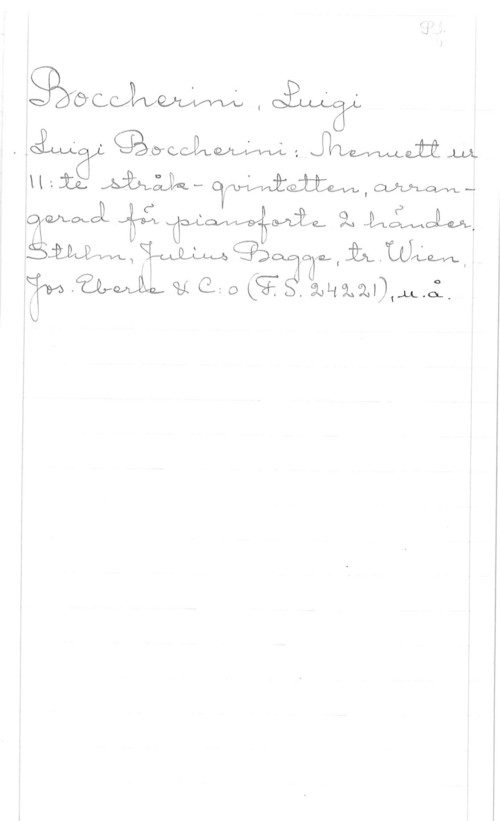 Pf.
Boccherini, Luigi
Luigi Boccherini: Menuett ur
11:te stråk-qvintetten, arran-
gerad för pianoforte 2 händer.
Sthlm, Julius Bagge, tr. Wien,
Jos. Eberle & C:o (F. S. 24221), u.å.